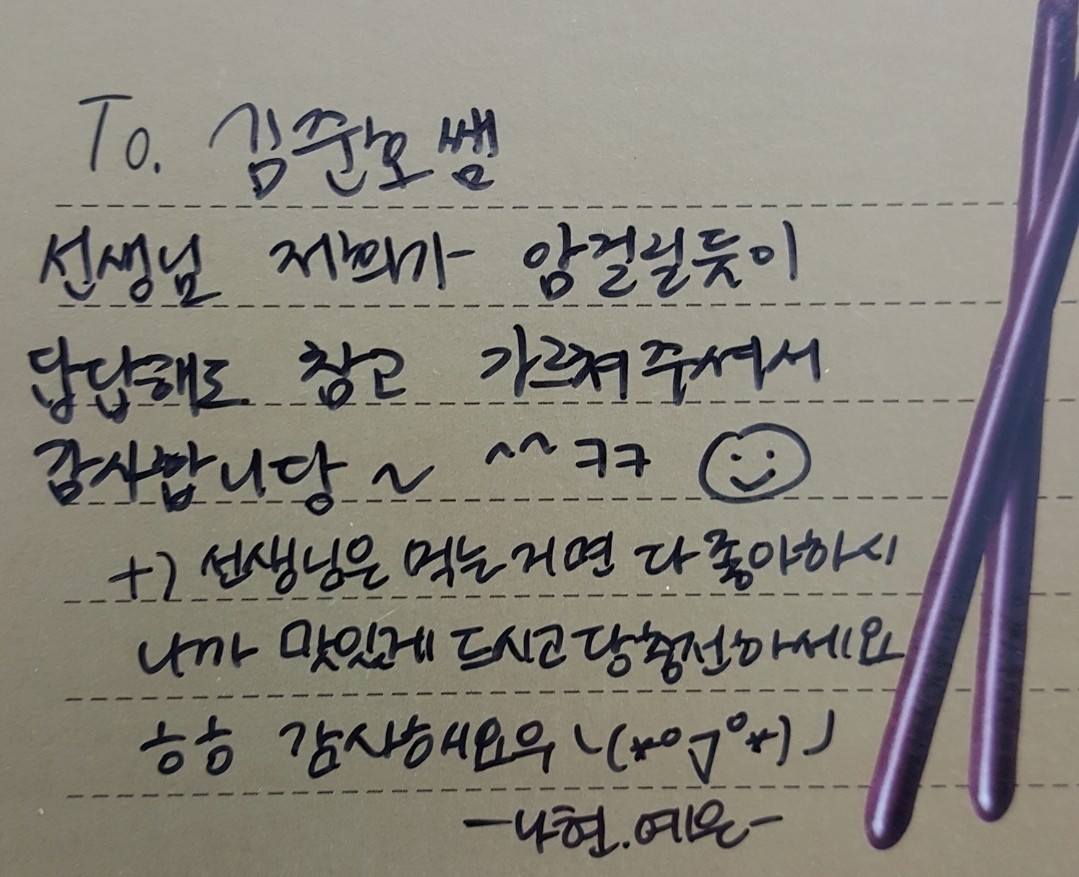 To. 김준호쌤
선생님 저희가 암걸릴듯이
답답해도 참고 가르쳐주셔서
감사합니당 ~ ^^ ㅋㅋ
+) 선생님은 먹는거면 다 좋아하시
니까 맛있게 드시고 당충전하세요
ㅎㅎ 감사해요우 ヽ(*°▽°*)ノ
-나현.예은-